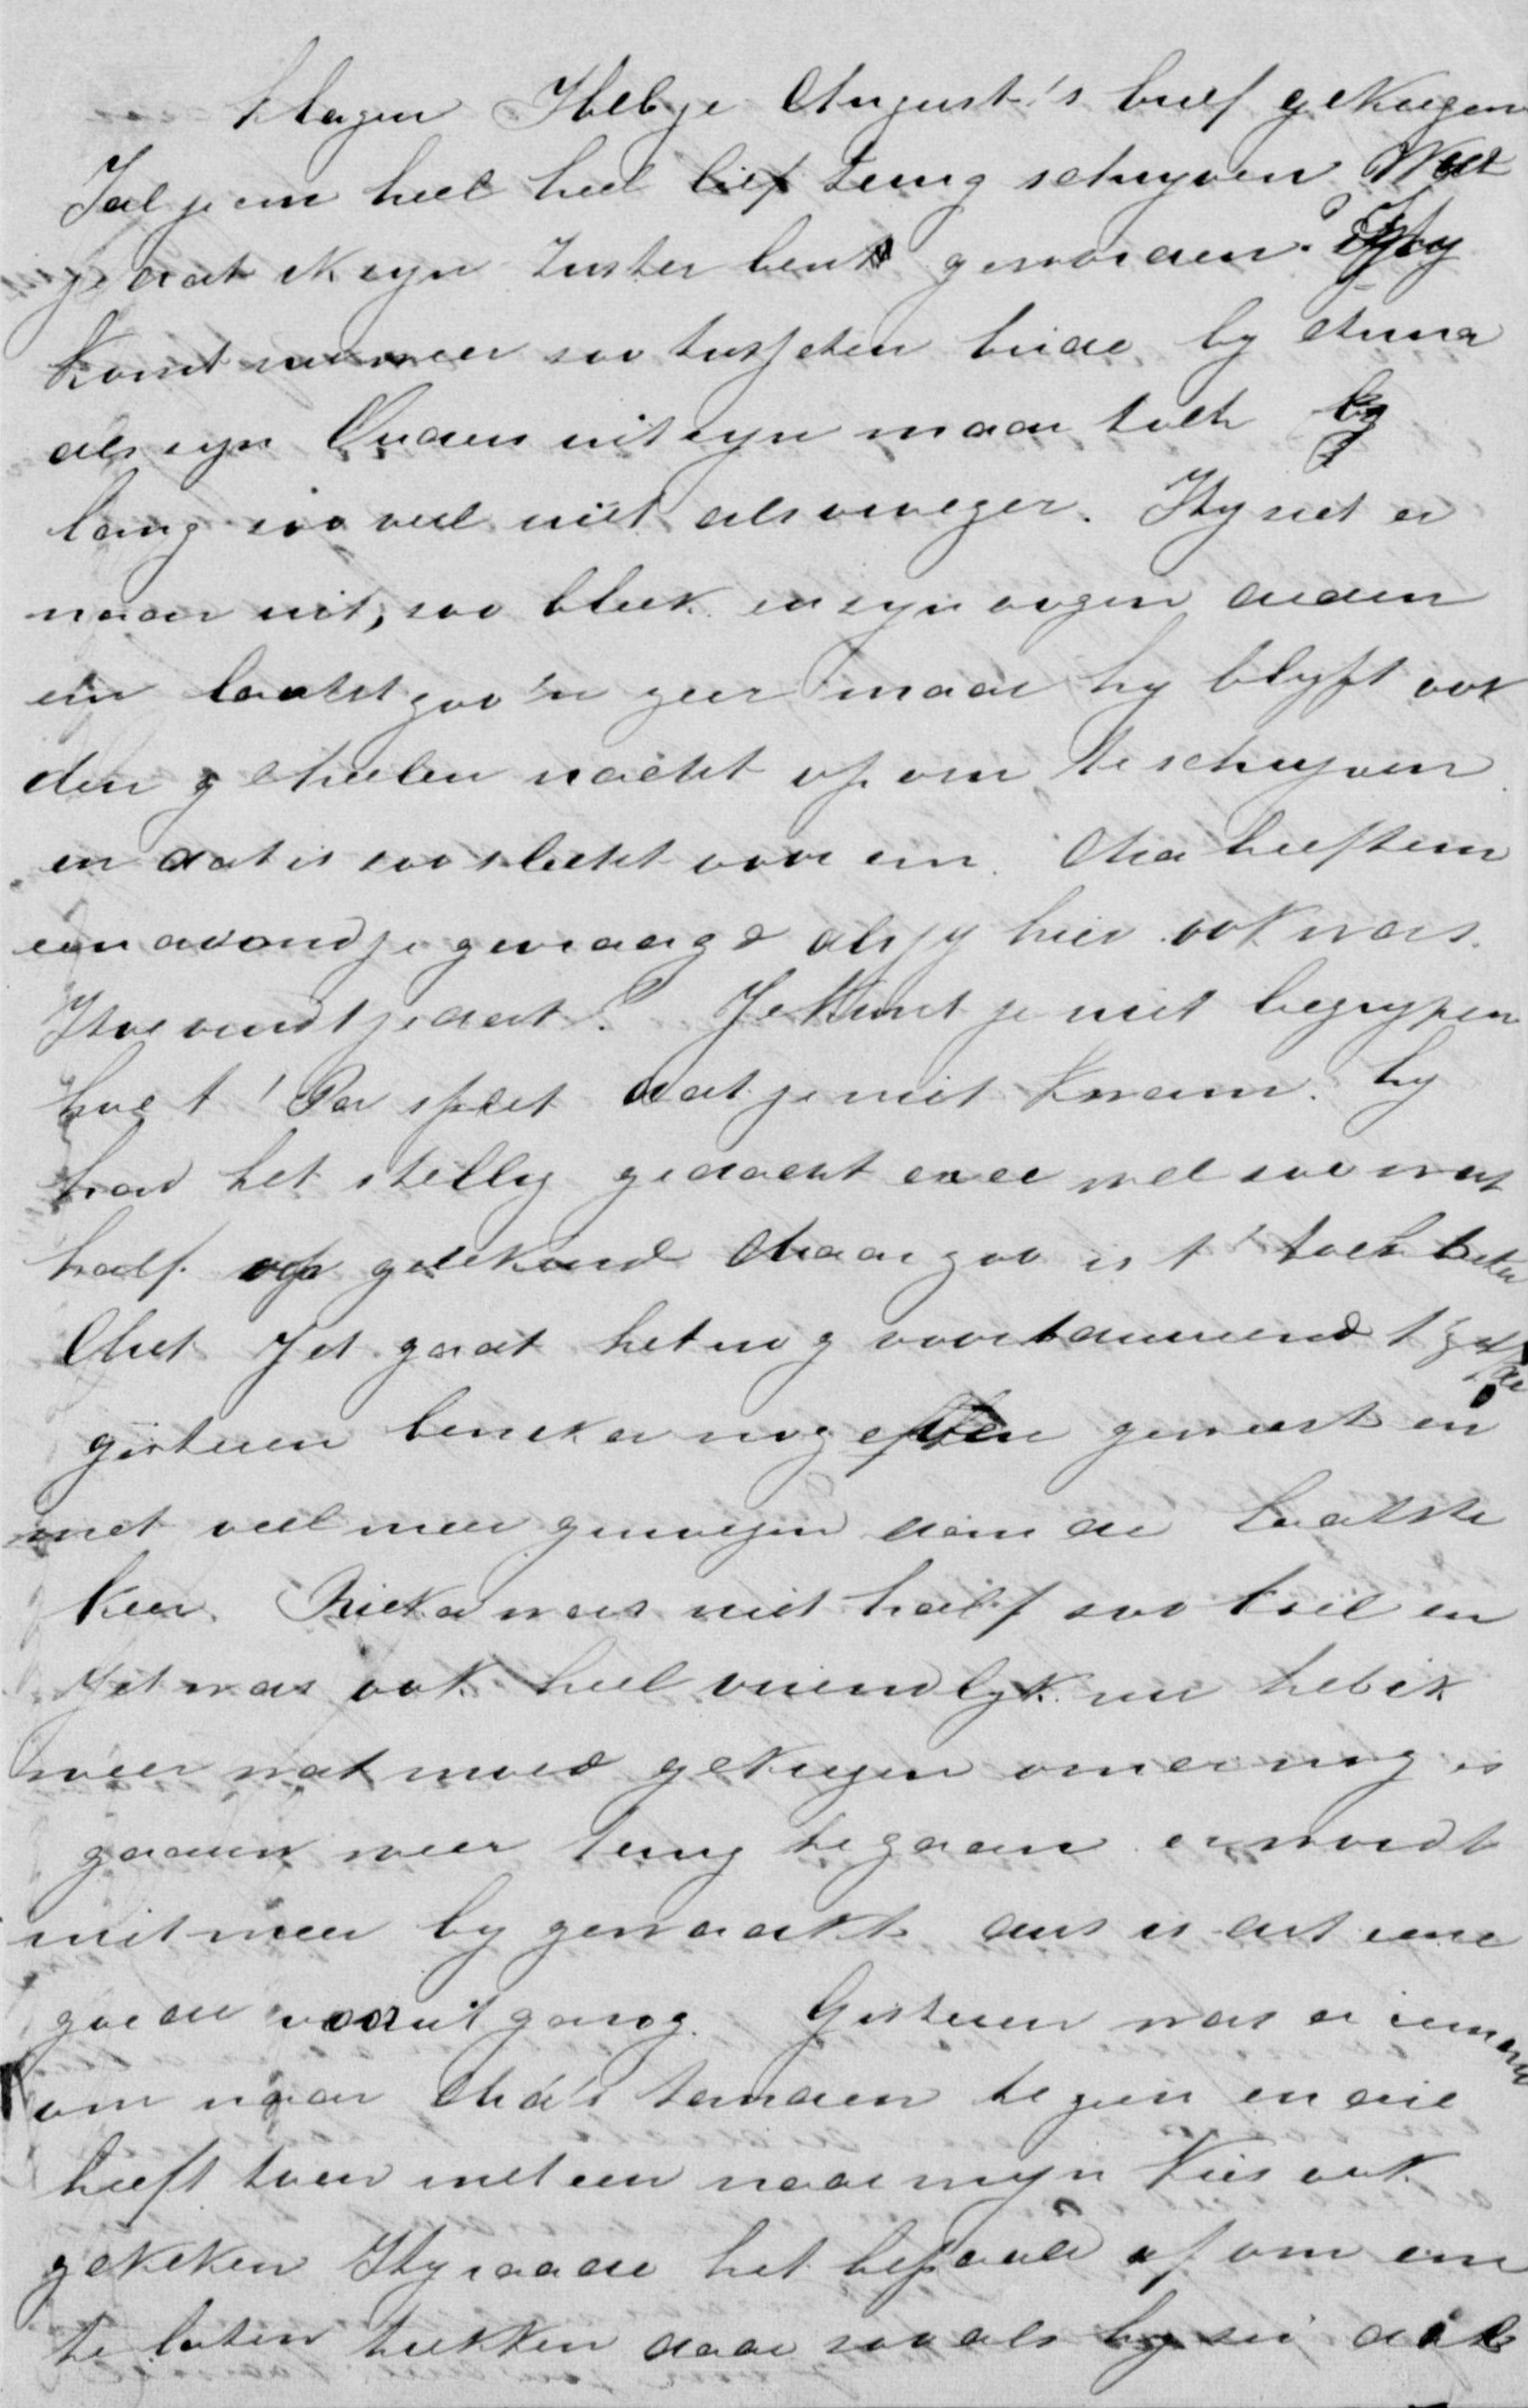 klagen Heb je August's brief gekregen
Zal je em heel heel lief terug schryven Weet
je dat ik zyn zuster ben geworden? Hy
komt nu weer zoo tusschen beide by Anna
als zyn Ouders uit zyn maar toch
lang zoo veel niet als vroeger. Hy ziet er
naar uit, zoo bleek en zyn oogen deden
em laatst zoo'n zeer maar hy blyft ook
den geheelen nacht op om te schryven
en dat is zoo slecht voor em. Ma heeft em
een avondje gevraagd als jy hier ook was.
Hoe vindt je dat? Je kunt je niet begrypen
hoe t' Pa speet dat je niet kwam. hy
had het stellig gedacht en er wel zoo wat
half op gerekend Maar zoo is t' toch beter
Met Jet gaat het nog voortdurend 't zelfde
gisteren ben ik er nog even geweest en
met veel meer genoegen dan de laatste
keer. Rieka was niet half zoo koel en
Jet was ook heel vriendlyk nu heb ik
weer wat moed gekregen om er nog is
gaauw weer terug te gaan er wordt
niet meer by gewaakt dus is dat eene
goede vooruitgang. Gisteren was er iemand
om naar Ma's tanden te zien en die
heeft toen met een naar myn kies ook
gekeken Hy raadde het bepaald af om em
te laten trekken daar zooals hy zei dat